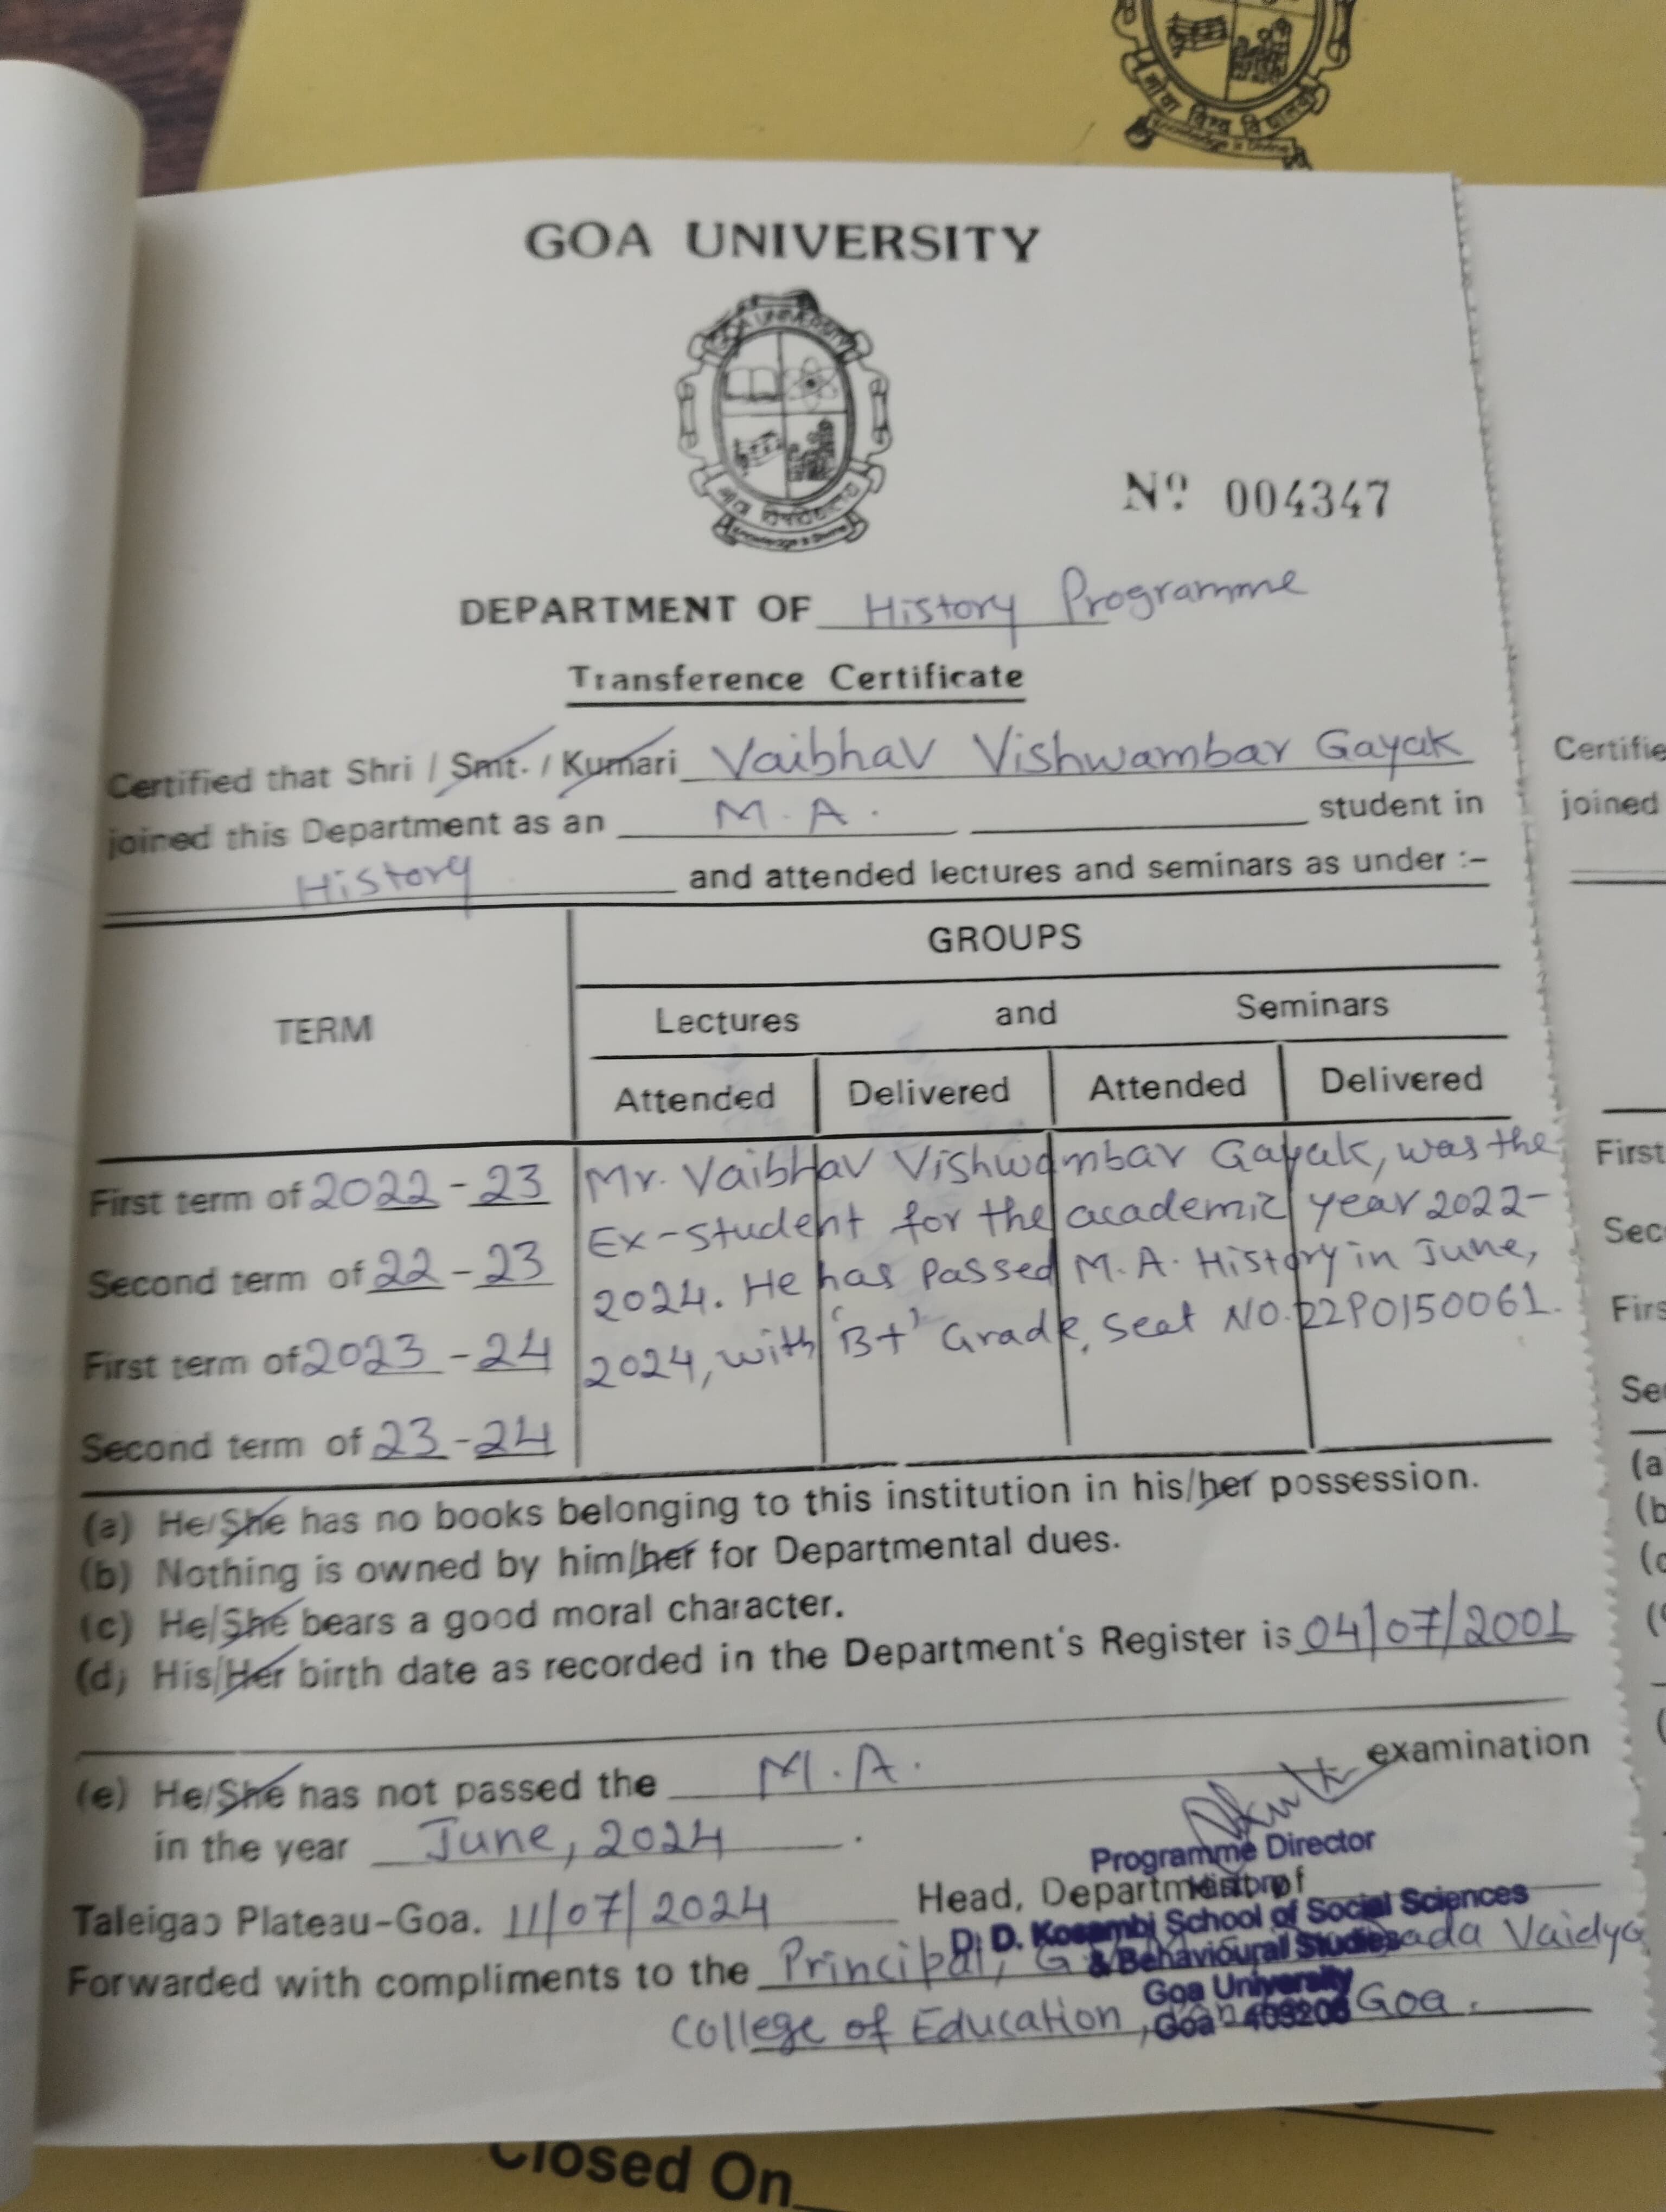 गोवा विश्व विद्यालय
Knowledge is Divine
GOA UNIVERSITY
GOA UNIVERSITY
Knowledge is Divine
Nº 004347
DEPARTMENT OF History Programme
Transference Certificate
Certified that Shri / Smt. / Kumari Vaibhav Vishwambar Gayak
joined this Department as an M.A. student in
History and attended lectures and seminars as under :-
TERM
GROUPS
Lectures and Seminars
Attended Delivered Attended Delivered
First term of 2022-23 Mr. Vaibhav Vishwambar Gayak, was the
Ex-student for the academic year 2022-
Second term of 22-23
2024. He has passed M.A. History in June,
First term of 2023-24 2024, with 'B+' Grade, seat NO. 22P0150061.
Second term of 23-24
(a) He/She has no books belonging to this institution in his/her possession.
(b) Nothing is owned by him/her for Departmental dues.
(c) He/She bears a good moral character.
(d) His/Her birth date as recorded in the Department's Register is 04/07/2001
(e) He/She has not passed the M.A. examination
in the year June, 2024.
Programme Director
History
Taleigao Plateau-Goa. 11/07/2024 Head, Department of
D. D. Kosambi School of Social Sciences
& Behavioural Studies
Forwarded with compliments to the Principal, Vaidya
Goa University
College of Education, Goa.
Goa - 403206
Certifie
joined
First
Sec
Firs
Se
(a
(b
(c
Closed On